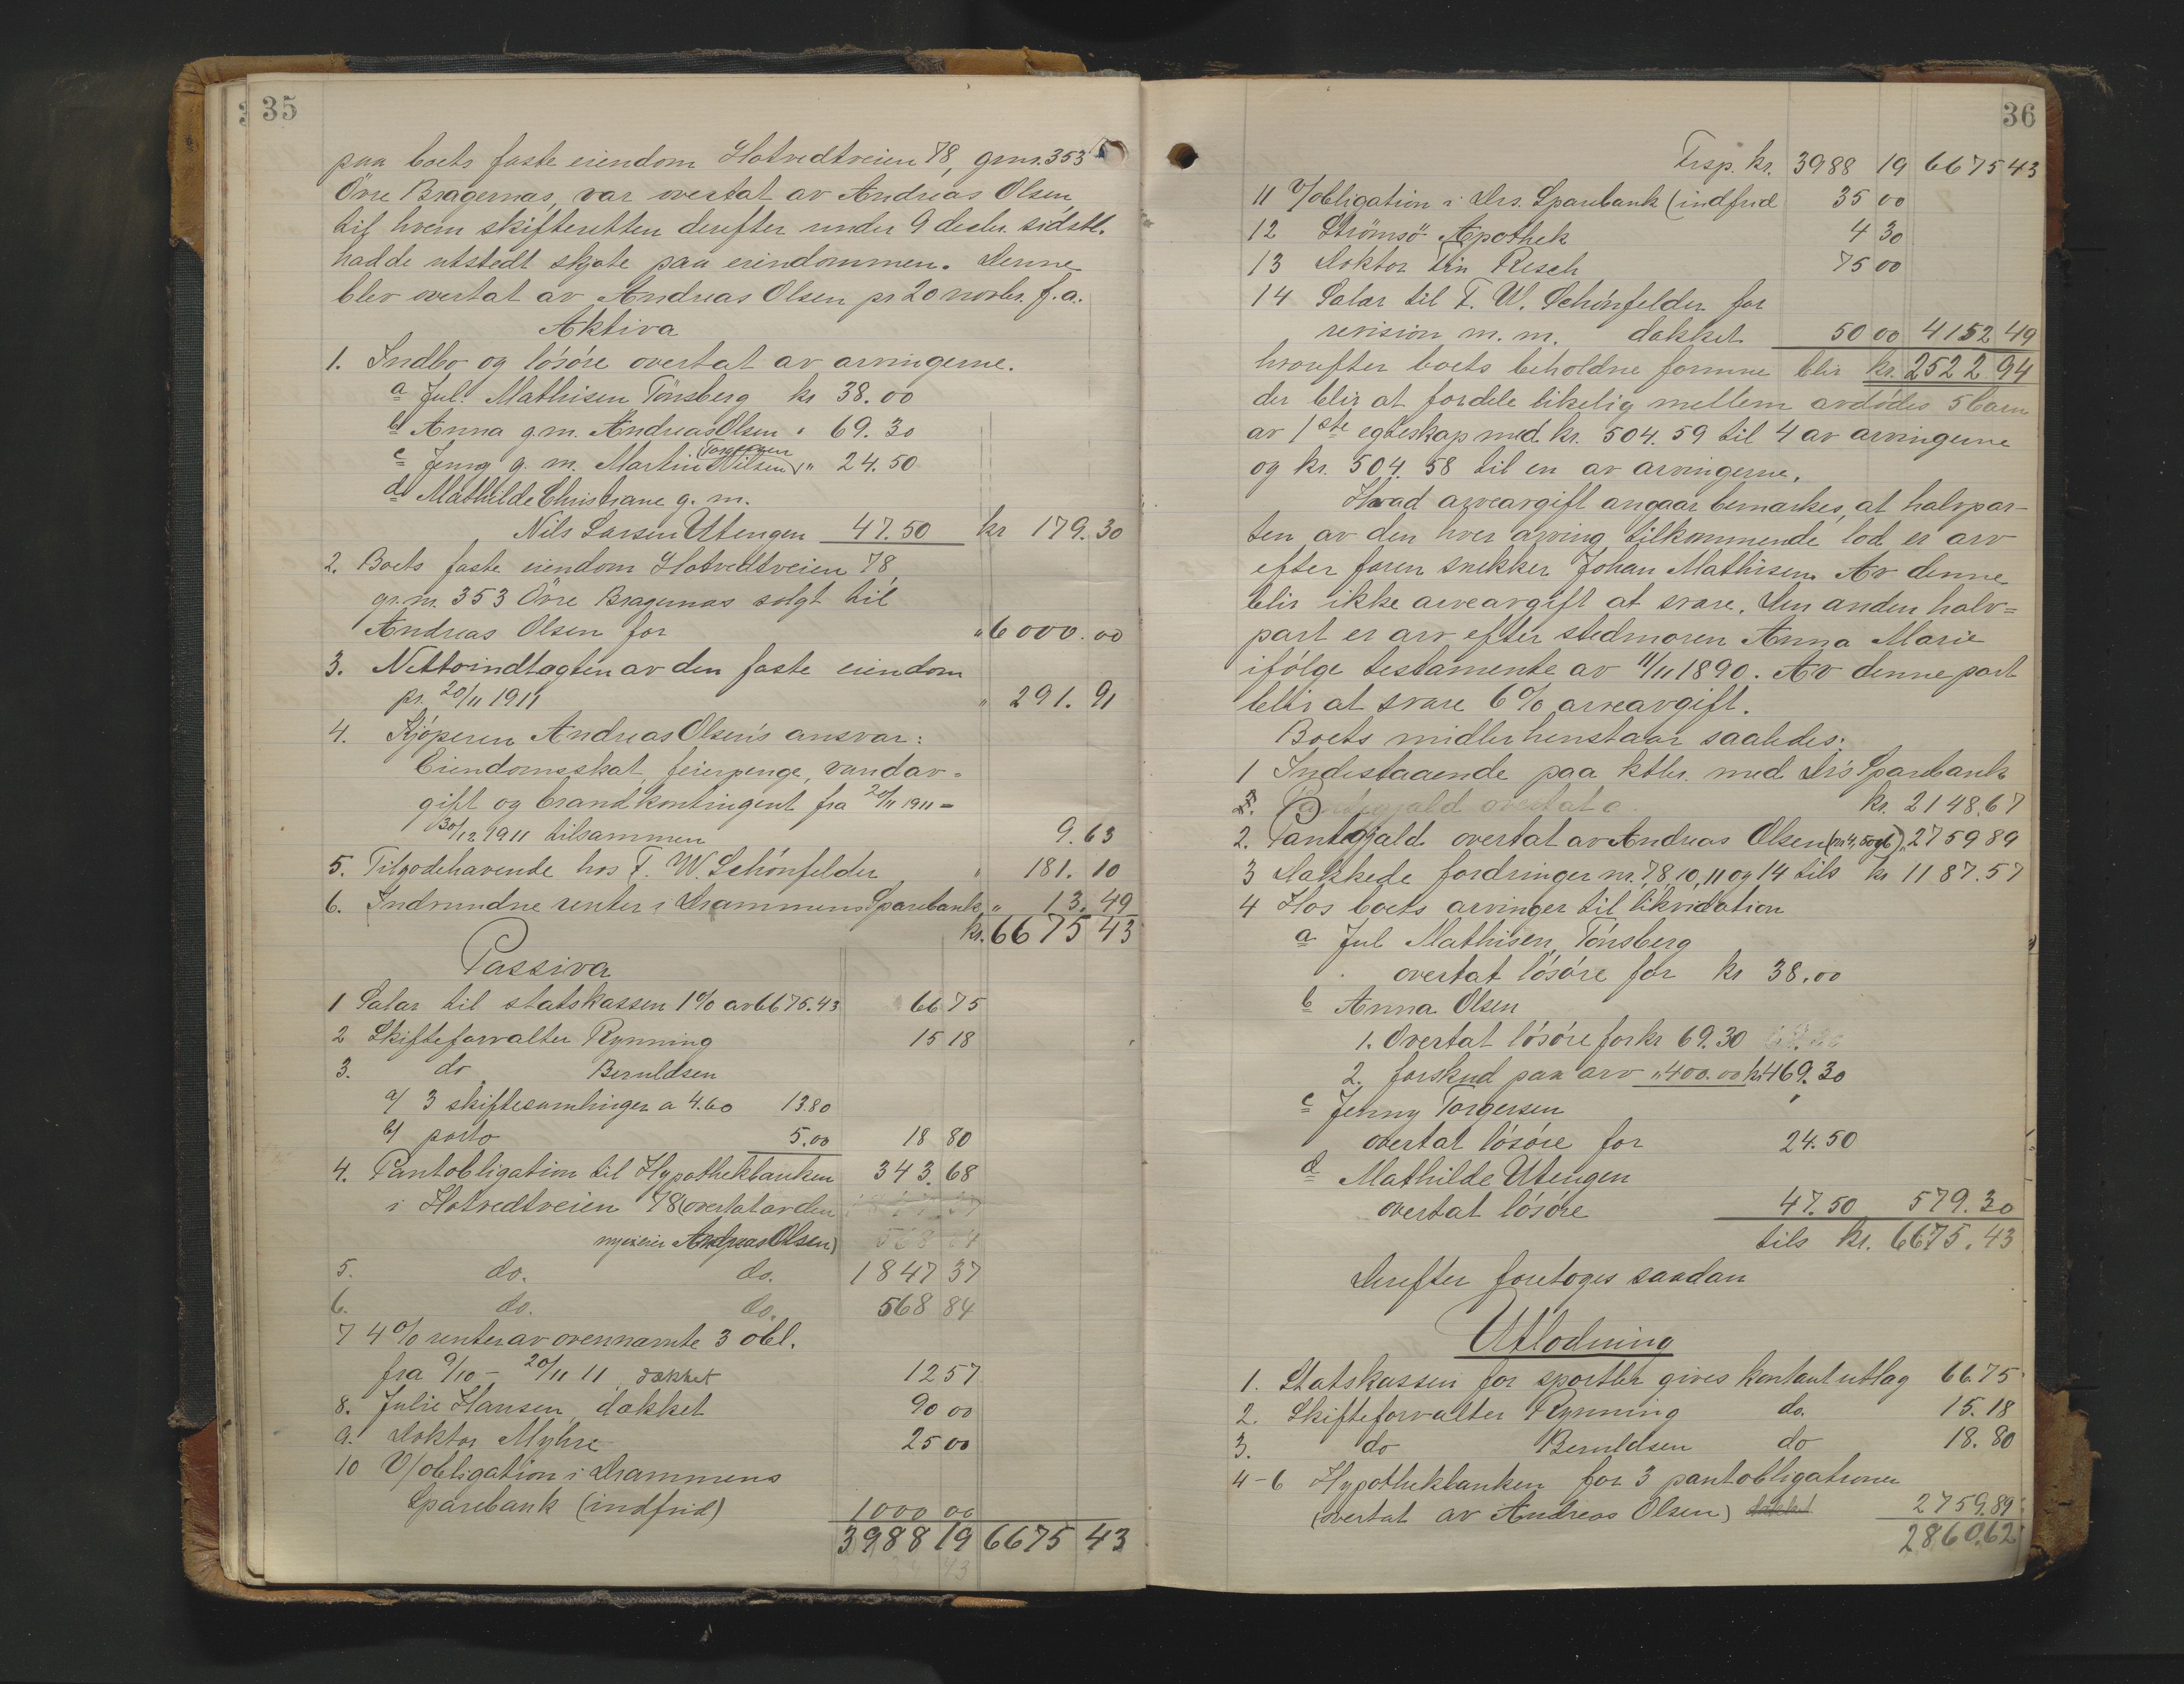 35
paa boets faste eiendom Hotvedtveien 78, grnr. 353
Övre Bragernæs, var overtat av Andreas Olsen,
til hvem skifteretten derefter under 9 decbr. sidstl.
hadde utstedt skjøte paa eiendommen. Denne
blev overtat av Andreas Olsen pr 20 novbr. f.a.
Aktiva
1. Indbo og lösöre overtat av arvingerne.
a Jul. Mathisen Tönsberg kr 38.00
b Anna g.m. Andreas Olsen " 69.30
Torgersen
c Jenny g. m. Martin Nilsen " 24.50
d Mathilde Christiane g. m.
Nils Larsen Utengen 47.50 kr 179.30
2. Boets faste eiendom Hotvedtveien 78,
gr.nr. 353 Övre Bragernæs solgt til
Andreas Olsen for " 6000.00
3. Nettoindtægten av den faste eiendom
pr. 20/11 1911 " 291.91
4. Kjöperen Andreas Olsen's ansvar:
Eiendomsskat, feierpenge, vandav-
gift og brandkontingent fra 20/11 1911 -
30/12 1911 tilsammen 9.63
5. Tilgodehavende hos F. W. Schönfelder " 181.10
6. Indvundne renter i Drammens Sparebank " 13.49
kr. 6675 43
Passiva
1 Salær til statskassen 1% av 6675.43 66 75
2 Skifteforvalter Rynning 15 18
3. do Beruldsen
a/ 3 skiftesamlinger a 4.60 13.80
b/ porto 5.00 18 80
4. Pantobligation til Hypothekbanken 343.68
i Hotvedtveien 78 (overtat av den
nye eier Andreas Olsen)
5. do. do. 1847 37
6. do. do. 568 84
7 4% renter av ovennævnte 3 obl.
fra 9/10 - 20/11 11 dækket 12 57
8. Julie Hansen, dækket 90 00
9. Doktor Myhre 25 00
10 V/obligation i Drammens
Sparebank (indfrid) 1000 00
3988 19 6675 43
36
Trsp. kr. 3988 19 6675 43
11 V/obligation i Drs. Sparebank (indfrid 35 00
12 Strömsö Apothek 4 30
13 Doktor Resch 75 00
14 Salær til F. W. Schönfelder for
revision m. m. dækket 50 00 4152 49
hvorefter boets beholdne formue blir kr. 2522 94
der blir at fordele likelig mellem avdödes 5 barn
av 1ste egteskap med kr. 504.59 til 4 av arvingerne
og kr. 504.58 til en av arvingerne.
Hvad arveavgift angaar bemærkes, at halvpar-
ten av den hver arving tilkommende lod er arv
efter faren snekker Johan Mathisen. Av denne
blir ikke arveavgift at svare. Den anden halv=
part er arv efter stedmoren Anna Marie
ifölge testamente av 11/11 1890. Av denne part
blir at svare 6% arveavgift.
Boets midler henstaar saaledes:
1 Indestaaende paa ktbr. med Drs Sparebank
kr. 2148.67
2. Pantegjæld overtat av Andreas Olsen (nr 4, 5 og 6) " 2759 89
3 Dækkede fordringer nr. 7, 8 10, 11 og 14 tils kr 1187.57
4 Hos boets arvinger til likvidation
a Jul Mathisen, Tönsberg
overtat lösöre for kr 38.00
b Anna Olsen
1. Overtat lösöre for kr 69.30
2. forskud paa arv " 400.00 kr 469.30
c Jenny Torgersen
overtat lösöre for 24.50
d Mathilde Utengen
overtat lösöre 47.50 579.30
tils kr. 6675.43
Derefter foretoges saadan
Utlodning
1. Statskassen for sportler gives kontant utlæg 66.75
2. Skifteforvalter Rynning do. 15.18
3. do Beruldsen do 18.80
4-6 Hypothekbanken for 3 pantobligationer
(overtat av Andreas Olsen) dækket 2759.89
2860.62